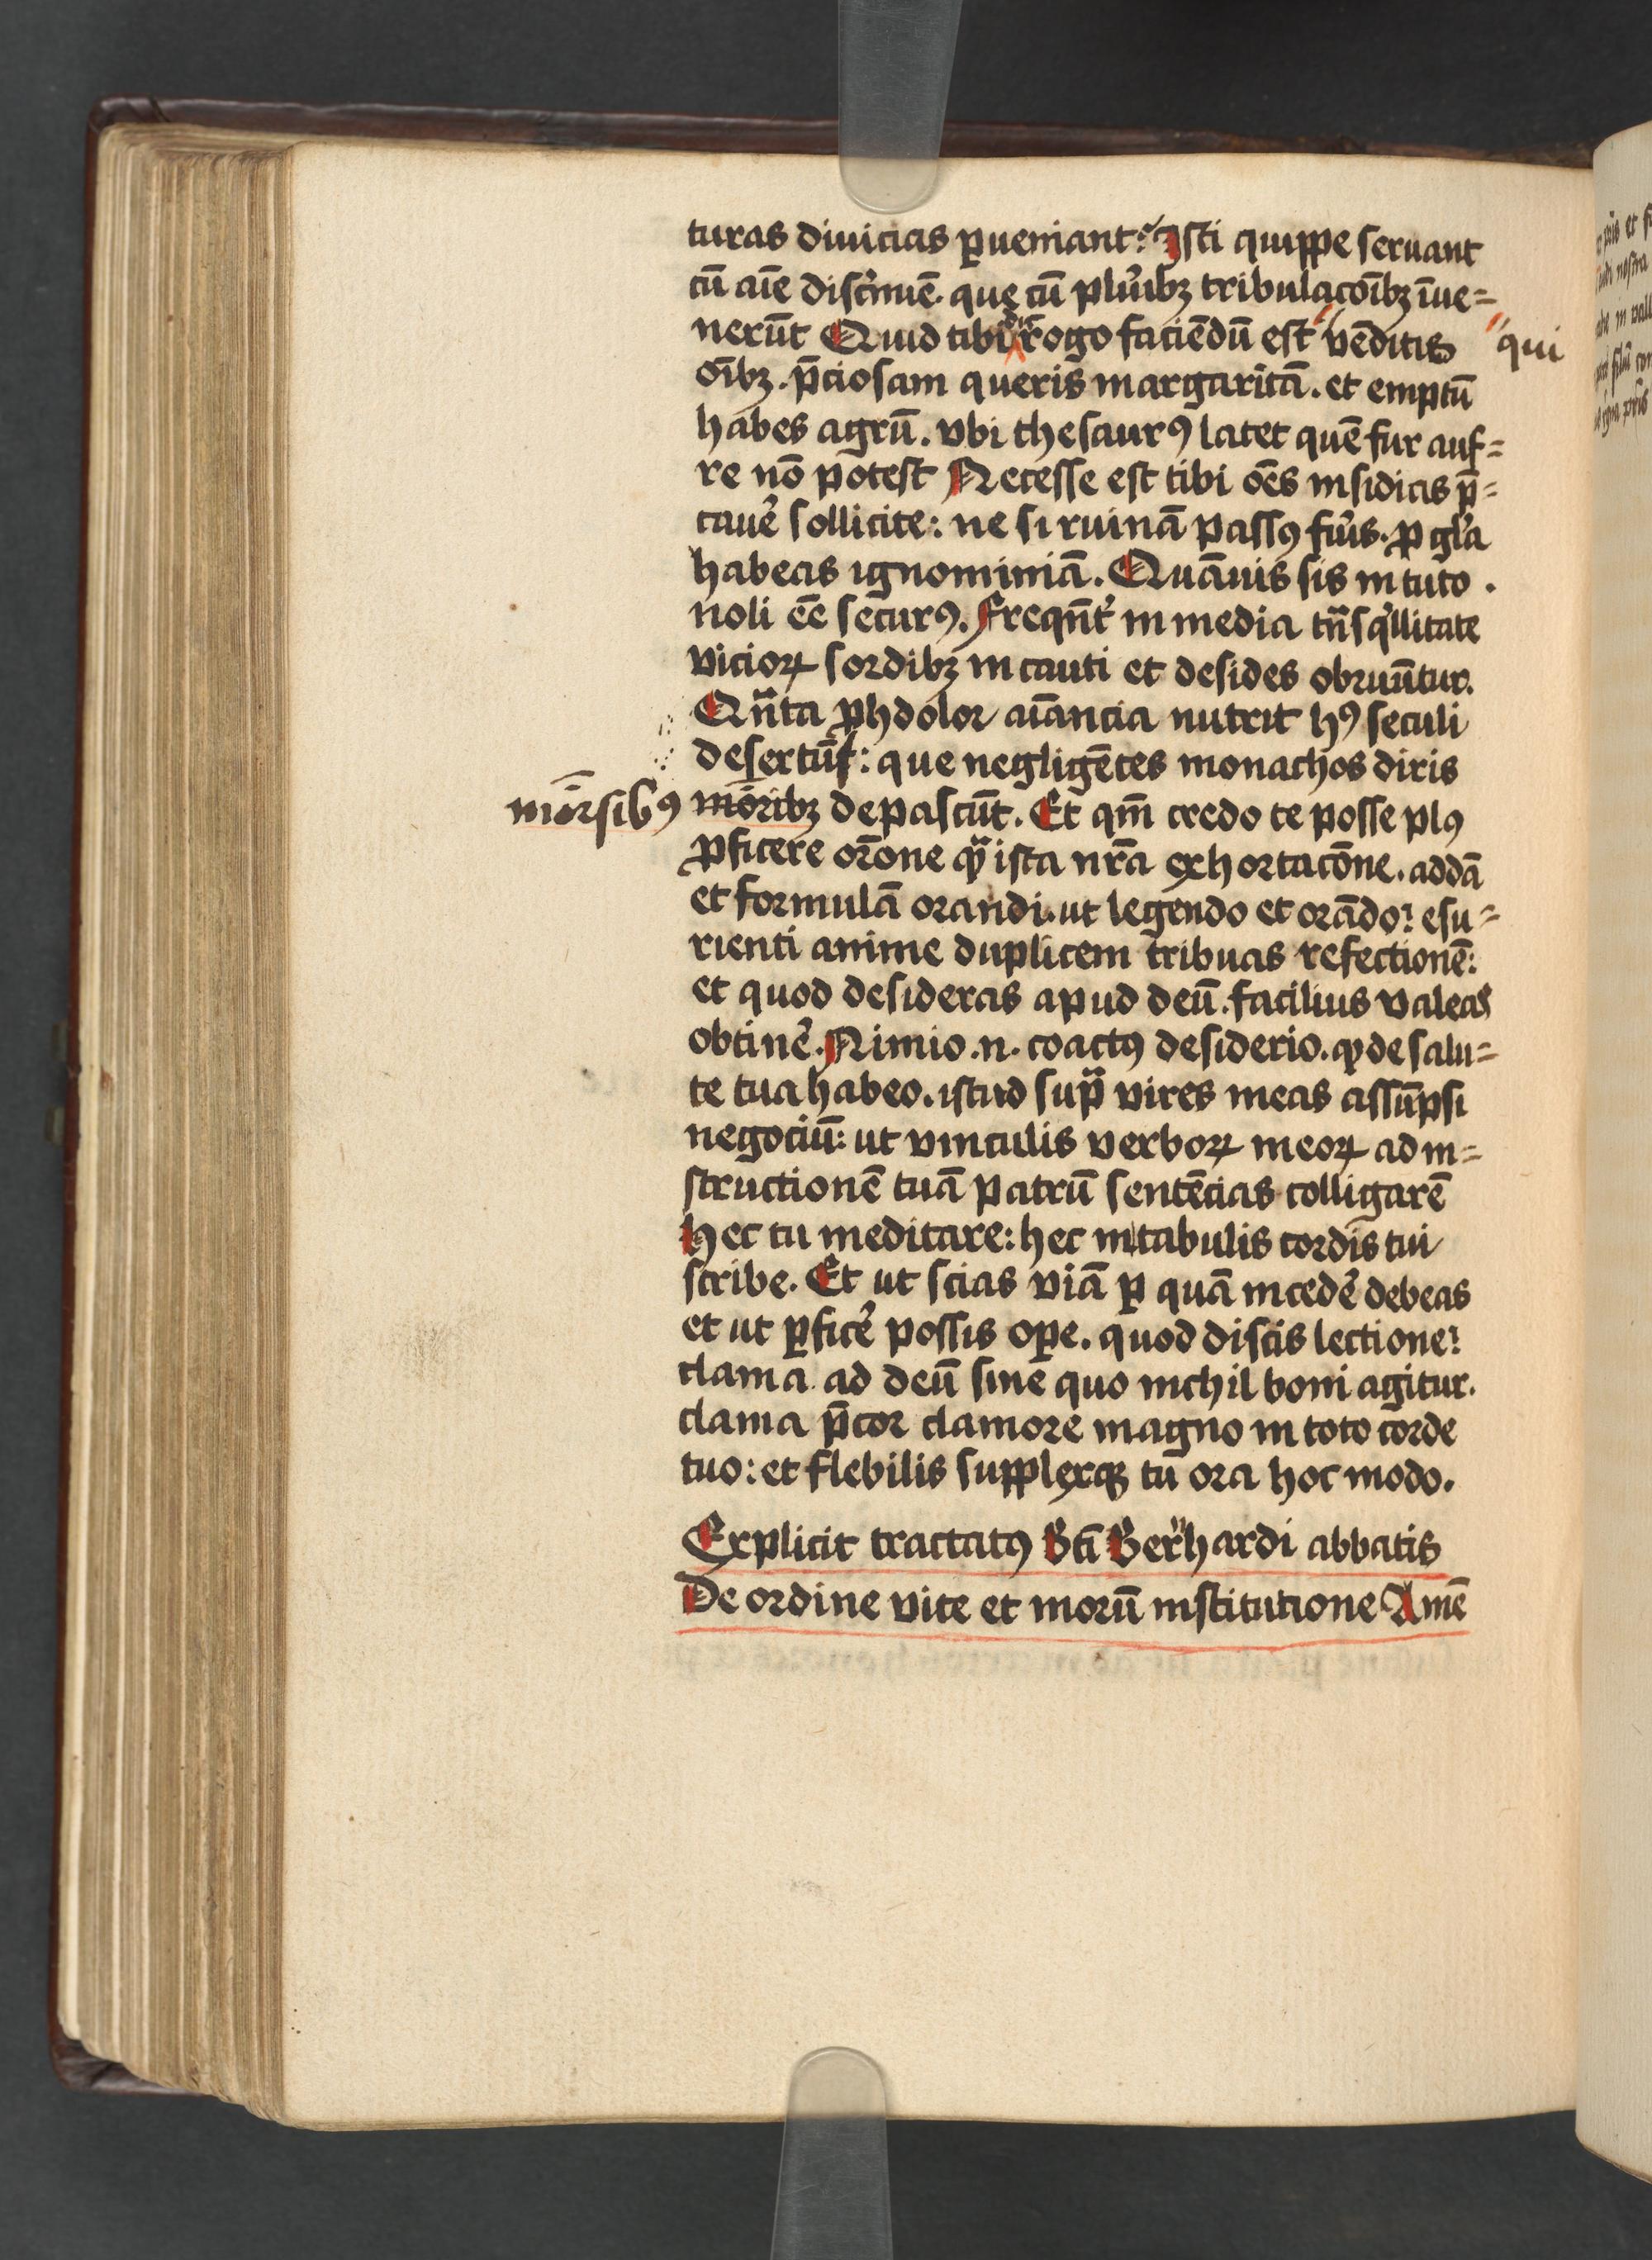 turas diuicias ꝑueniant: Isti quippe seruant
cū aīe discͥmīe. que cū plurͥbꝫ tribulacōībꝫ īue=
nerūt Quid tibi rogo faciēdū est vēditis qui
oībꝫ. p̄ciosam queris margaritā. et emptū
habes agrū. vbi thesaurꝰ latet quē fur auf=
re nō potest Necesse est tibi oēs insidias p̄=
cauē sollicite: ne si ruinā passꝰ fuͥs. ꝓ gl̓a
habeas ignominiā. Quāuis sis in tuto.
noli eē securꝰ. Freqn̄t̓ in media tn̄sqͥllitate
vicioꝝ sordibꝫ incauti et desides obruūtur.
Qn̄ta ꝓhdolor aīancia nutrit hꝰ seculi
desertū: que negligētes monachos diris
morsibꝰ mōribꝫ depascūt. Et qm̄ credo te posse plꝰ
ꝓficere orōne qͣ ista nr̄a exhortacōne. addā
et formulā orandi. ut legendo et orādo: esu=
rienti anime duplicem tribuas refectionē:
et quod desideras apud deū. facilius valeas
obtinē. Nimio .n. coactꝰ desiderio. ꝙ de salu=
te tua habeo. istud supͣ vires meas assūpsi
negociū: ut vinculis verboꝝ meoꝝ ad in=
structionē tuā patrū sentēcias colligarē
Hec tu meditare: hec in tabulis cordis tui
scribe. Et ut scias viā ꝑ quā incedē debeas
et ut ꝑficē possis oꝑe. quod discis lectione:
clama ad deū sine quo nichil boni agitur.
clama p̄cor clamore magno in toto corde
tuo: et flebilis supplexqꝫ tū ora hoc modo.
Explicit tractatꝰ Bt̄i Bern̄hardi abbatis
De ordine vite et morū institutione Amē